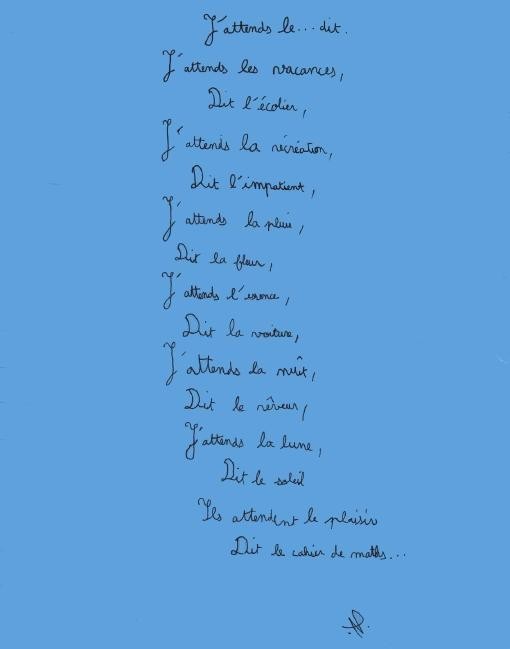 J'attends le... dit.
J'attends les vacances,
Dit l'écolier,
J'attends la récréation,
Dit l'impatient,
J'attends la pluie,
Dit la fleur,
J'attends l'essence,
Dit la voiture,
J'attends la nuit,
Dit le rêveur,
J'attends la lune,
Dit le soleil
Ils attendent le plaisir
Dit le cahier de maths...